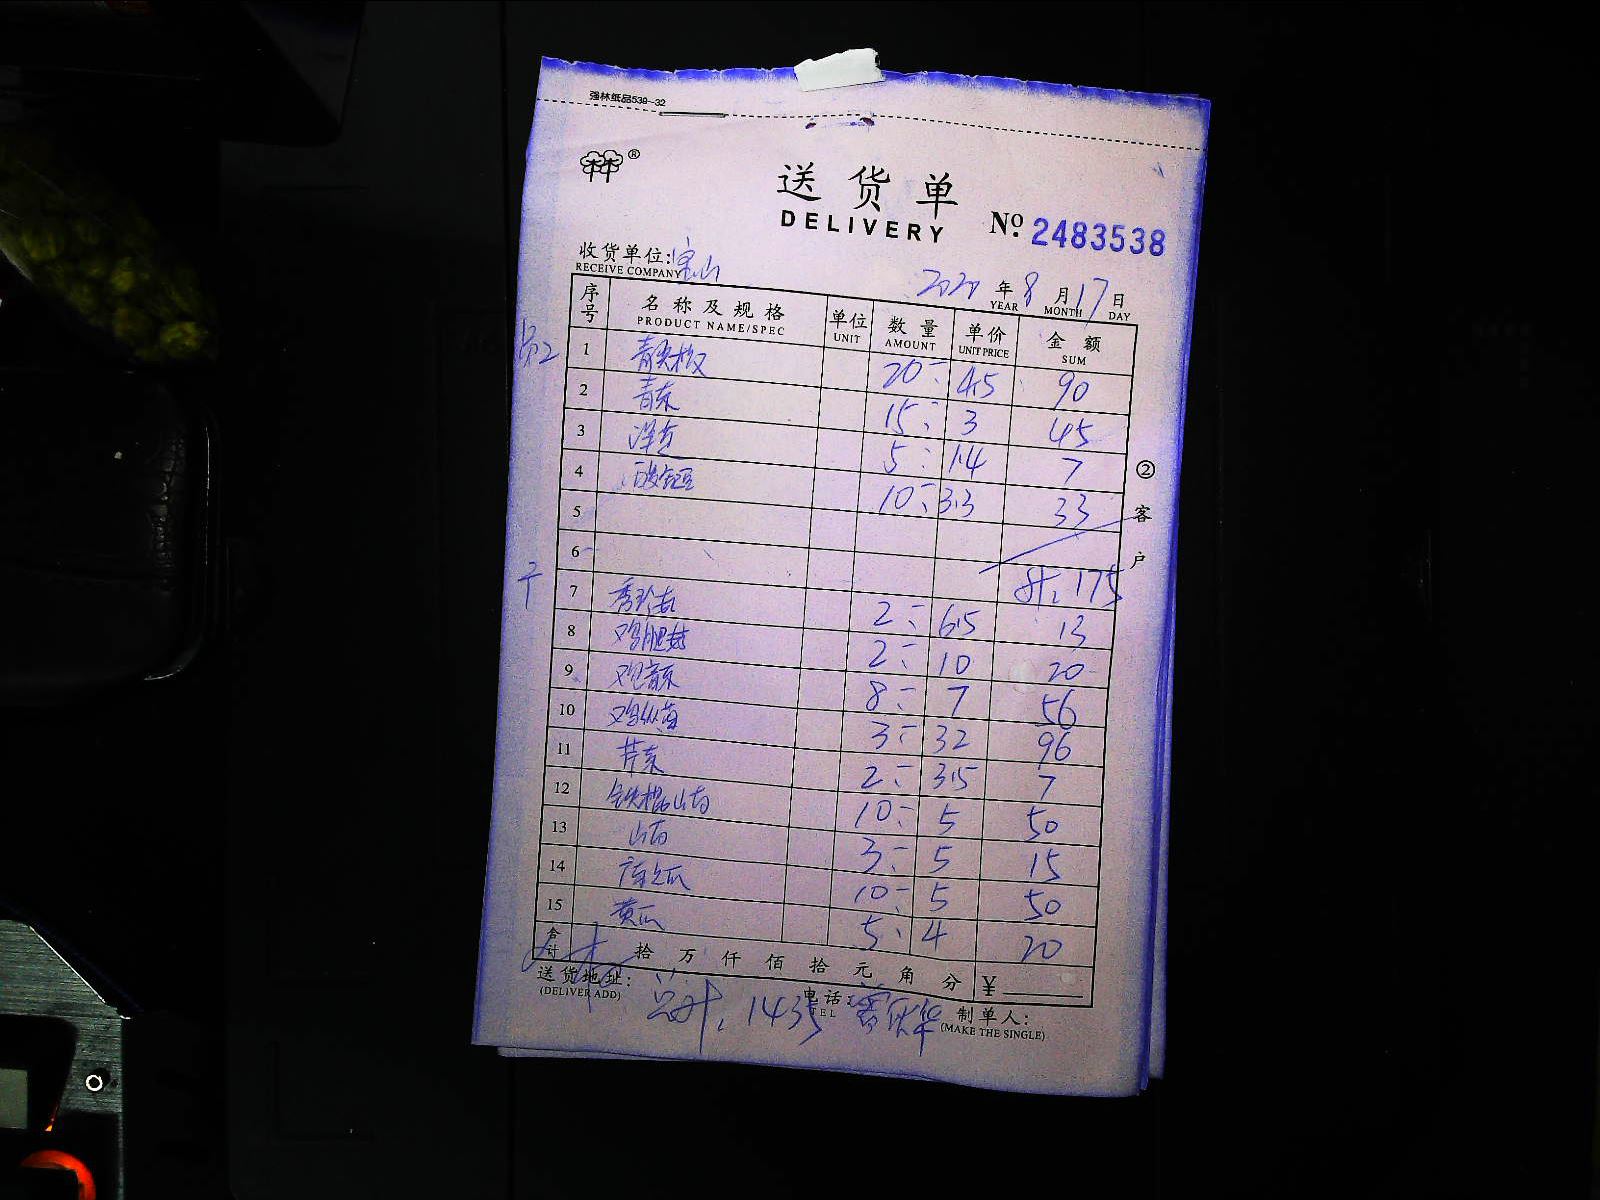 强林纸品539-32
®
送货单
DELIVERY
№ 2483538
收货单位: 宝山
RECEIVE COMPANY
2020 年 8 月 17 日
YEAR MONTH DAY
序号 名称及规格 单位 数量 单价 金额
PRODUCT NAME/SPEC UNIT AMOUNT UNIT PRICE SUM
1 20 4.5 90
2 青菜 15 3 45
3 5 1.4 7
4 10 3.3 33
5
6 计: 175
7 秀珍菇 2 6.5 13
8 鸡腿菇 2 10 20
9 8 7 56
10 鸡枞菌 3 32 96
11 芹菜 2 3.5 7
12 铁棍山药 10 5 50
13 山药 3 5 15
14 10 5 50
15 黄瓜 5 4 20
合计 拾 万 仟 佰 拾 元 角 分 ¥
送货地址:
(DELIVER ADD)
总计: 1435
电话:
TEL
制单人:
(MAKE THE SINGLE)
② 客户